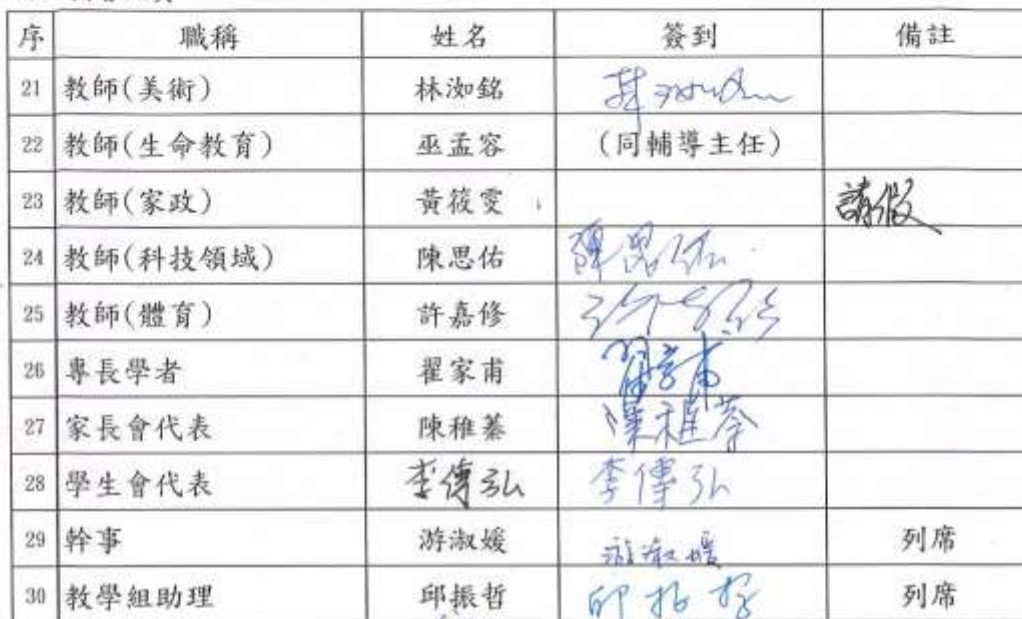 序 職稱 姓名 簽到 備註
21 教師(美術) 林洳銘
22 教師(生命教育) 巫孟容 (同輔導主任)
23 教師(家政) 黃筱雯 請假
24 教師(科技領域) 陳思佑 陳思佑
25 教師(體育) 許嘉修
26 專長學者 翟家甫 翟家甫
27 家長會代表 陳稚蓁 陳稚蓁
28 學生會代表 李傳弘 李傳弘
29 幹事 游淑媛 游淑媛 列席
30 教學組助理 邱振哲 邱振哲 列席